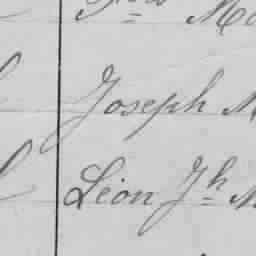 Joseph M
Léon Jh M